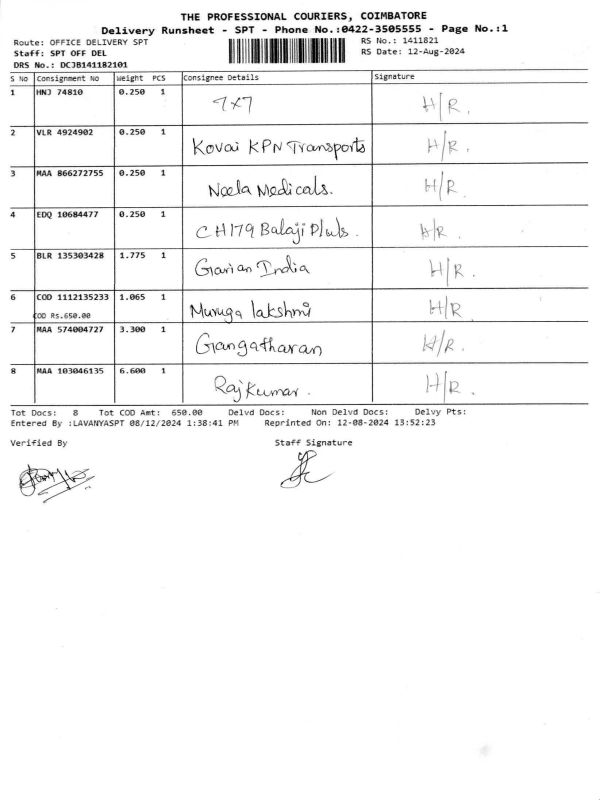 THE PROFESSIONAL COURIERS, COIMBATORE
Delivery Runsheet - SPT - Phone No.:0422-3505555 - Page No.:1
Route: OFFICE DELIVERY SPT RS No.: 1411821
Staff: SPT OFF DEL RS Date: 12-Aug-2024
DRS No.: DCJB141182101
S No Consignment No Weight PCS Consignee Details Signature
1 HNJ 74810 0.250 1 7x7 H/R.
2 VLR 4924902 0.250 1 Kovai KPN Transports H/R.
3 MAA 866272755 0.250 1 Neela Medicals. H/R.
4 EDQ 10684477 0.250 1 CH179 Balaji H/R.
5 BLR 135303428 1.775 1 Garian India H/R.
6 COD 1112135233 1.065 1 Muruga lakshmi H/R
COD Rs.650.00
7 MAA 574004727 3.300 1 Gangatharan H/R.
8 MAA 103046135 6.600 1 Rajkumar. H/R.
Tot Docs: 8 Tot COD Amt: 650.00 Delvd Docs: Non Delvd Docs: Delvy Pts:
Entered By :LAVANYASPT 08/12/2024 1:38:41 PM Reprinted On: 12-08-2024 13:52:23
Verified By Staff Signature